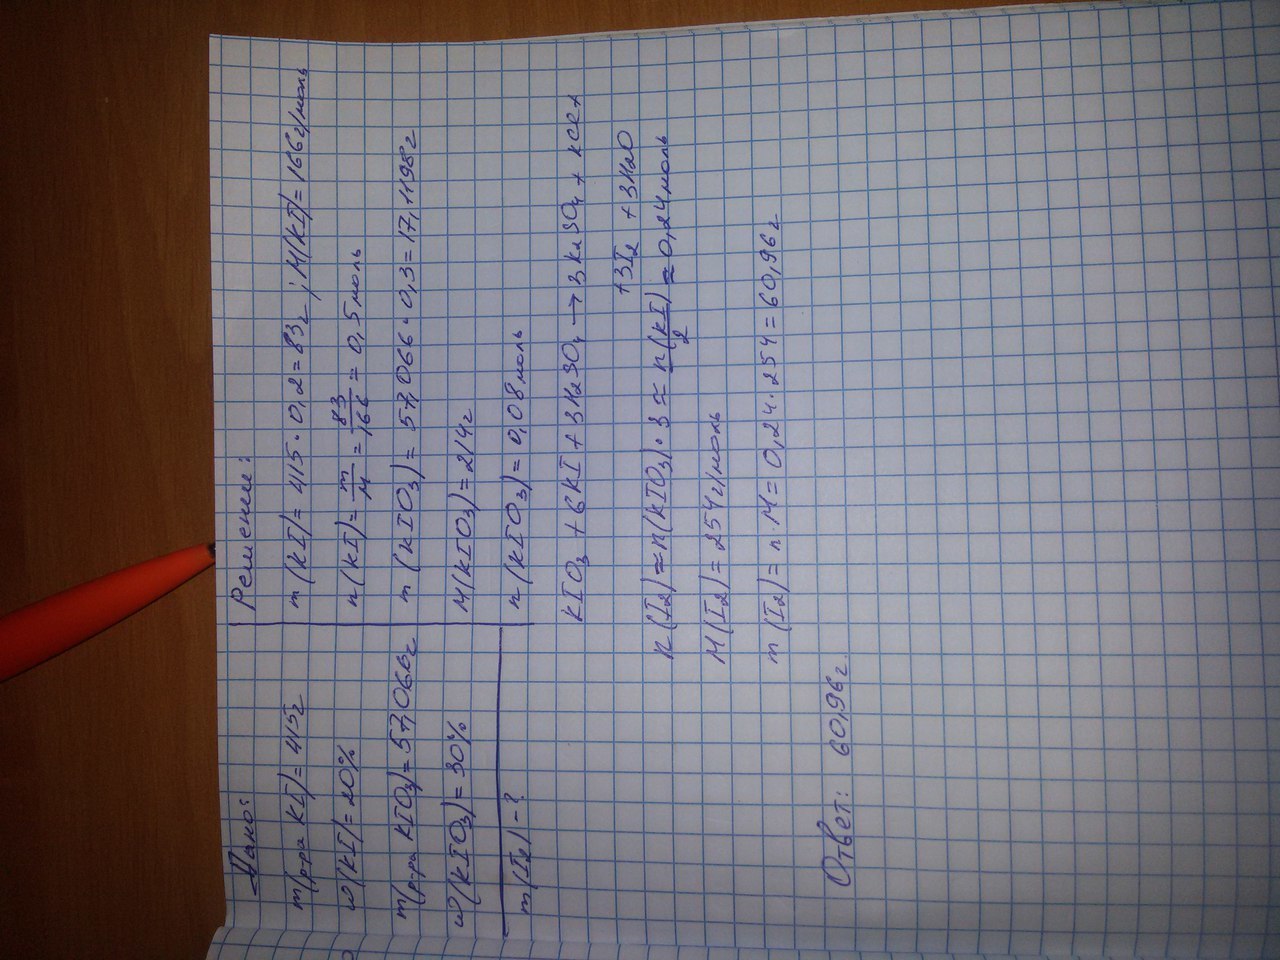 Дано:
m(р-ра KI)=415г
ω(KI)=20%
m(р-ра KIO3)=57,066г
ω(KIO3)=30%
m(I2)-?
Решение:
m(KI)=415·0,2=83г; M(KI)=166г/моль
n(KI)=m/M=83/166=0,5моль
m(KIO3)=57,066·0,3=17,1198г
M(KIO3)=214г
n(KIO3)=0,08моль
KIO3+6KI+3H2SO4→3K2SO4+KCl+
+3I2+3H2O
n(I2)≈n(KIO3)·3≈n(KI)/2≈0,24моль
M(I2)=254г/моль
m(I2)=n·M=0,24·254=60,96г
Ответ: 60,96г.